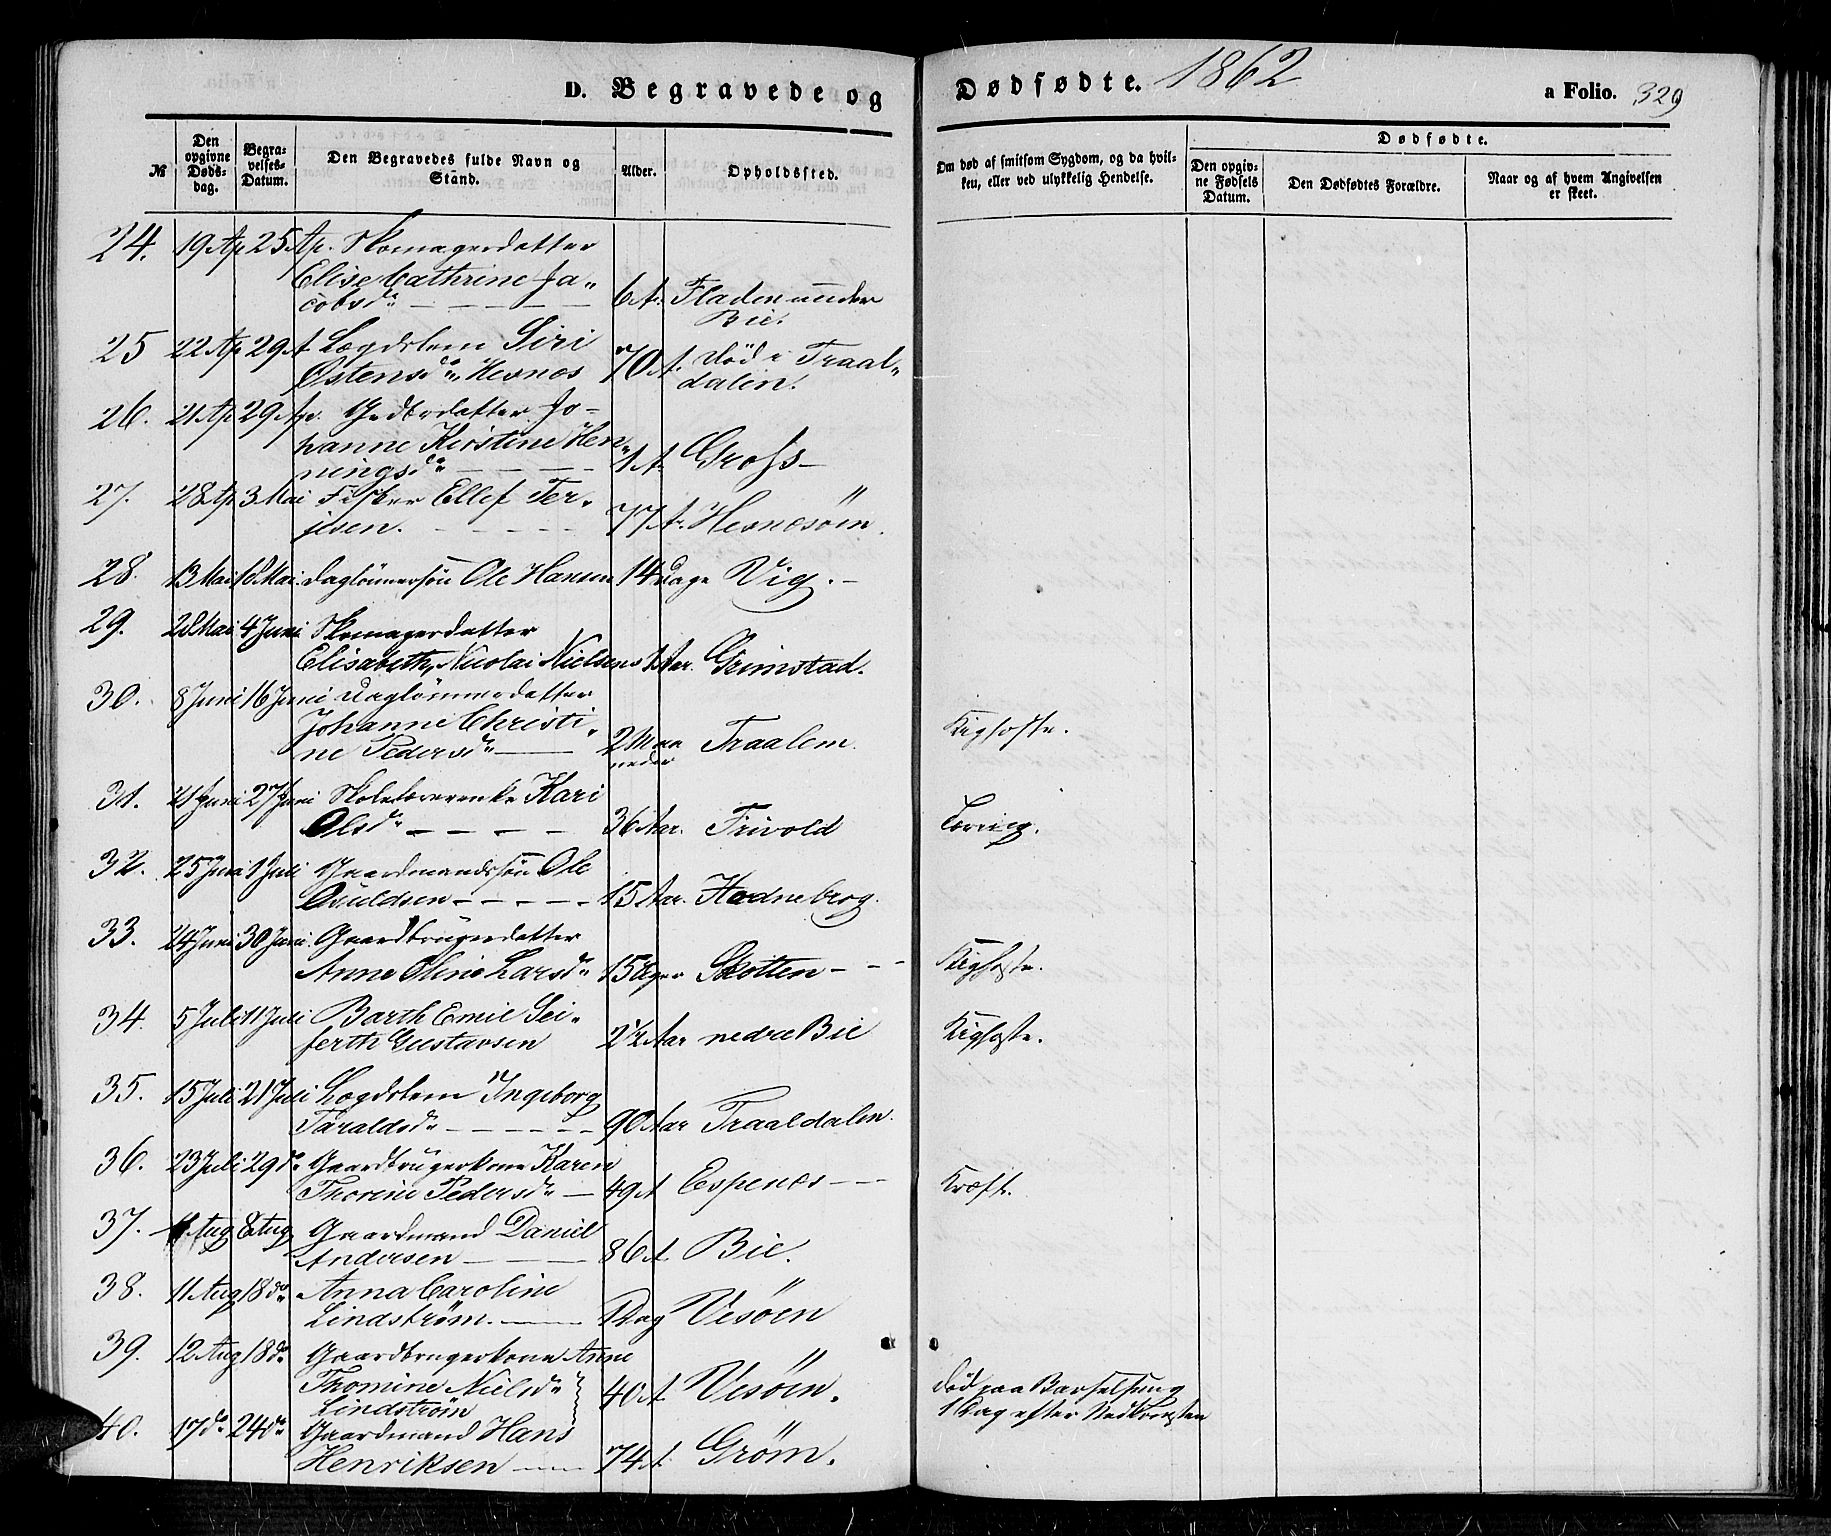 D. Begravede og Dødfødte. 1862 a Folio. 329
№ Den opgivne Døds-dag. Begra-velses-Datum. Den Begravedes fulde Navn og Stand. Alder. Opholdssted. Om død af smitsom Sygdom, og da hvil-ken, eller ved ulykkelig Hendelse. Dødfødte. Den opgiv-ne Fødsels Datum. Den Dødfødtes Forældre. Naar og af hvem Angivelsen er skeet.
24. 19 Ap 25 Ap. Skomagerdatter
Elise Cathrine Ja„
cobsdr 6 A. Fladen under
Bie.
25 22 Ap 29 A Lægdslem Siri
Østensdr, Hesnes 70 A. død i Traal„
dalen.
26. 21 Ap 29 Ap. Gdbrdatter Jo-
hanne Kirstine Hen„
ningsdr 1 A. Gross
27. 28 Ap 3 Mai Fisker Ellef Ter„
jesen. 77 A. Hesnesöen.
28. 13 Mai 16 Mai. Daglönnersön Ole Hansen 14 Dage Vig.
29. 28 Mai 4 Juni Skomagerdatter
Elisabeth, Nicolai Nielsens Aar. Grimstad.
30. 8 Juni 16 Juni Daglönnerdatter
Johanne Christi„
ne Pedersdr 2 Maa
neder Traalem. Kighoste.
31. 21 Juni 27 Juni Skolelærerenke Kari
Olsdr 36 Aar. Frivold Tæring.
32. 25 Juni 1 Juli Gaardmandssön Ole
Osuldsen 15 Aar. Hodneberg.
33. 24 Juni 30 Juni. Gaardbrugerdatter
Anne Oline Larsdr 15 Uger Skotten Kighoste.
34. 5 Juli 11 Juli Barth Emil Sei-
ferth Gustavsen 2½ Aar nedre Bie Kighoste.
35. 15 Juli 21 Juli Lægdslem Ingeborg
Taraldsdr 90 Aar Traaldalen.
36. 23 Juli 29 do Gaardbrugerkone Karen
Thorine Pedersdr 49 A Espenes Kræft.
37. Aug 8 Aug Gaardmand Daniel
Andersen 86 A Bie.
38. 11 Aug 18 do Anna Caroline
Lindstrøm. 1 Dag Vesöen
39. 12 Aug 18 do Gaardbrugerkone Anne
Thomine Nielsdr
Lindstrøm 40 A Vesöen. död paa Barselseng
1 Dag efter Nedkomsten
40. 17 do 24 do Gaardmand Hans
Henriksen 74 A. Grøm.